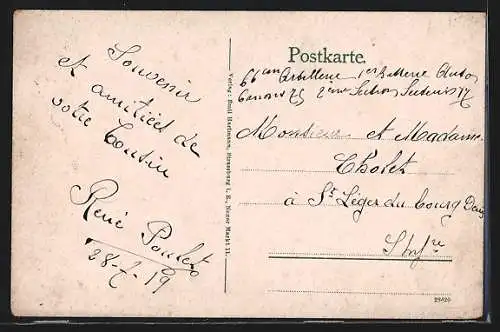 Souvenir
et amitiés de
votre Cousin
René Poulet
28-7-19
Verlag: Emil Hartmann, Strassburg i. E., Neuer Markt 11.
Postkarte.
66 em Artillerie 1er Batterie
Canon 75 2eme Section Secteur 77
Monsieur et Madame
Cholet
à St Léger du bourg Denis
S Infre
29420